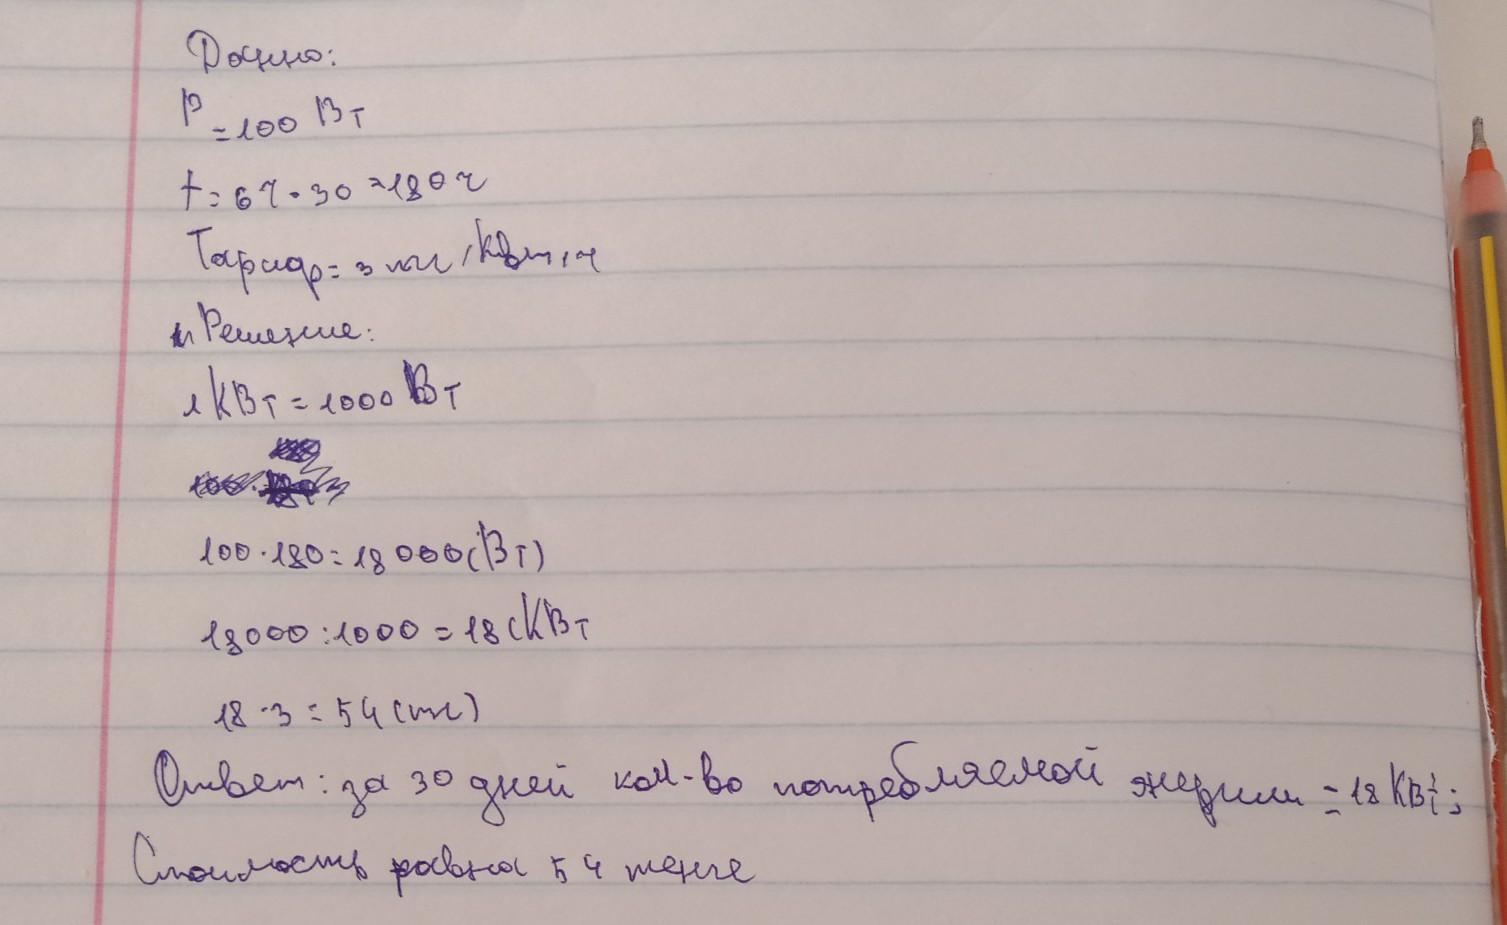 Дано:
P = 100 Вт
t = 6ч · 30 = 180 ч
Тариф = 3 тг / кВт, ч
Решение:
1 КВт = 1000 Вт
100 · 180 = 18000 (Вт)
18000 : 1000 = 18 (КВт
18 · 3 = 54 (тг)
Ответ: за 30 дней кол-во потребляемой энергии = 18 КВт;
Стоимость равна 54 тенге